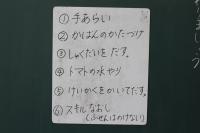 ①手あらい
②かばんのかたつけ
③しゅくだいをだす。
④トマトの水やり
⑤けいかくをかいてだす。
⑥スキルなおし
(ふせんはつけない)